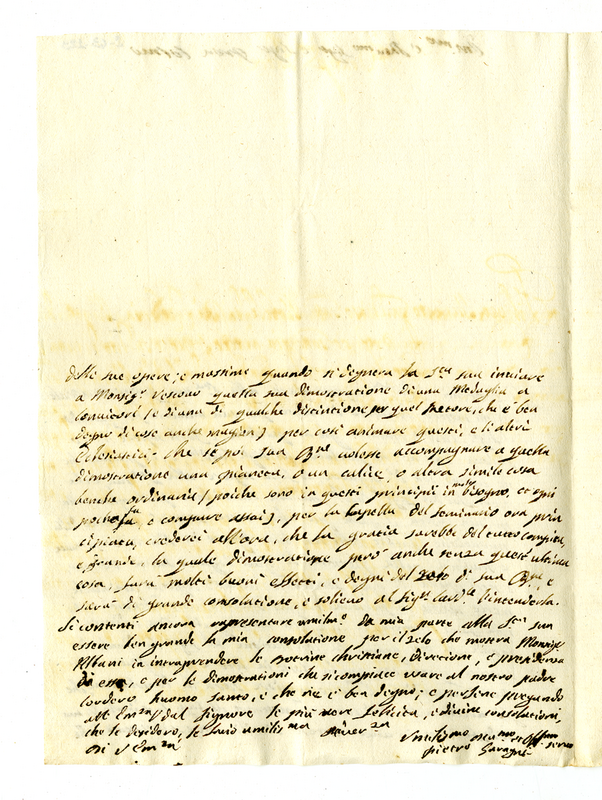 delle sue opere; e massime quando si degnera la S.tà sua inviare
a Monsig.r Vescovo quella sua dimostratione di una Medaglia a
convitori (e di una di qualche distinctione per quel Rettore, che è ben
degno di cose anche magiori) per cosi animare questi, e li altri
Eclesiastici: che se poi sua B.ne volesse accompagnare a quella
dimostratione una pianeta, o un calice, o altra simile cosa
benche ordinaria (poiche sono in questi principii in molto bisogno, et ogni
pocho fa, e compare assai), per la Capella del seminario ora prin
cipiata, crederei all'ora, che la gratia sarebbe del tutto compita,
e grande, la quale dimostratione però anche senza quest' ultima
cosa, farà molti buoni effecti, e degni del zelo di sua B.ne, e
sarà di grande consolatione, e solievo al Sig.r Card.le l'intenderla.
Si contenti ancora rapresentare umilm.e da mia parte alla S.tà sua
essere ben grande la mia consolatione per il zelo che mostra Monsig.r
Albani in intraprendere le dottrine christiane, direttione, e
di esse, e per le dimostrationi che si compiace usare al nostro padre
Cordero huomo santo, e che ne è ben degno; e per fine pregando
all' Em.za V. dal Signore le più vere felicità, e divine consolationi,
che le desidero, le facio umilis.ma river.za
Di V Em.za
Umilissimo servo
pietro